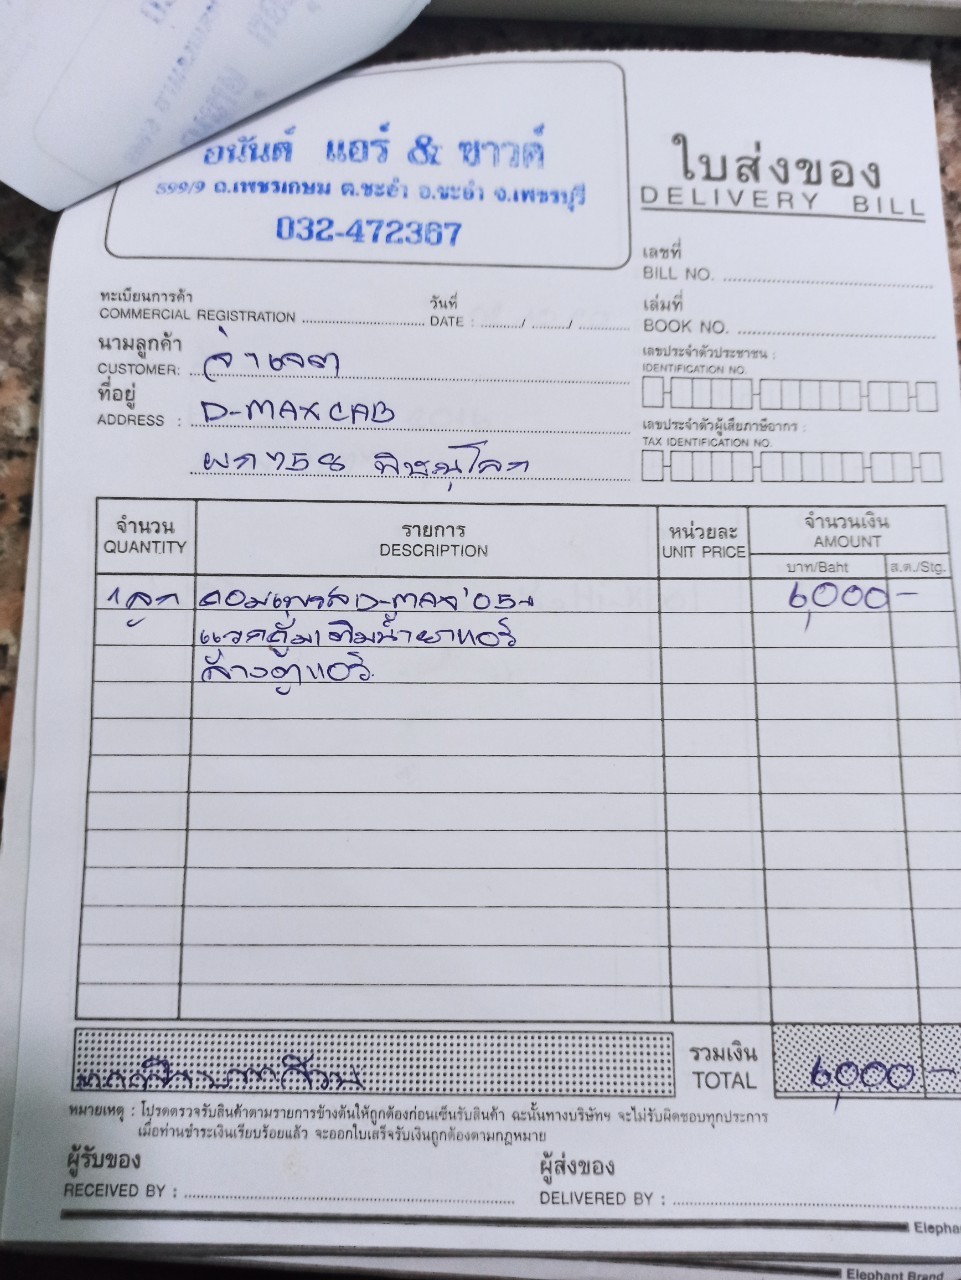 อนันต์ แอร์ & ซาวด์
599/9 ถ.เพชรเกษม ต.ชะอำ อ.ชะอำ จ.เพชรบุรี
032-472367
ใบส่งของ
DELIVERY BILL
เลขที่
BILL NO.
ทะเบียนการค้า
COMMERCIAL REGISTRATION
วันที่
DATE : / /
เล่มที่
BOOK NO.
นามลูกค้า
CUSTOMER:
เลขประจำตัวประชาชน :
IDENTIFICATION NO.
ที่อยู่
ADDRESS : D-MAX CAB
เลขประจำตัวผู้เสียภาษีอากร :
TAX IDENTIFICATION NO.
พิษณุโลก
จำนวน
QUANTITY
รายการ
DESCRIPTION
หน่วยละ
UNIT PRICE
จำนวนเงิน
AMOUNT
บาท/Baht
ส.ต./Stg.
1 ลูก คอมเพรส D-MAX'05 6,000 -
แวคคั่มเติมน้ำยาแอร์
ล้างตู้แอร์
หกพันบาทถ้วน
รวมเงิน
TOTAL
6,000 -
หมายเหตุ : โปรดตรวจรับสินค้าตามรายการข้างต้นให้ถูกต้องก่อนเซ็นรับสินค้า ฉะนั้นทางบริษัทฯ จะไม่รับผิดชอบทุกประการ
เมื่อท่านชำระเงินเรียบร้อยแล้ว จะออกใบเสร็จรับเงินถูกต้องตามกฎหมาย
ผู้รับของ
RECEIVED BY :
ผู้ส่งของ
DELIVERED BY :
Elephant Brand